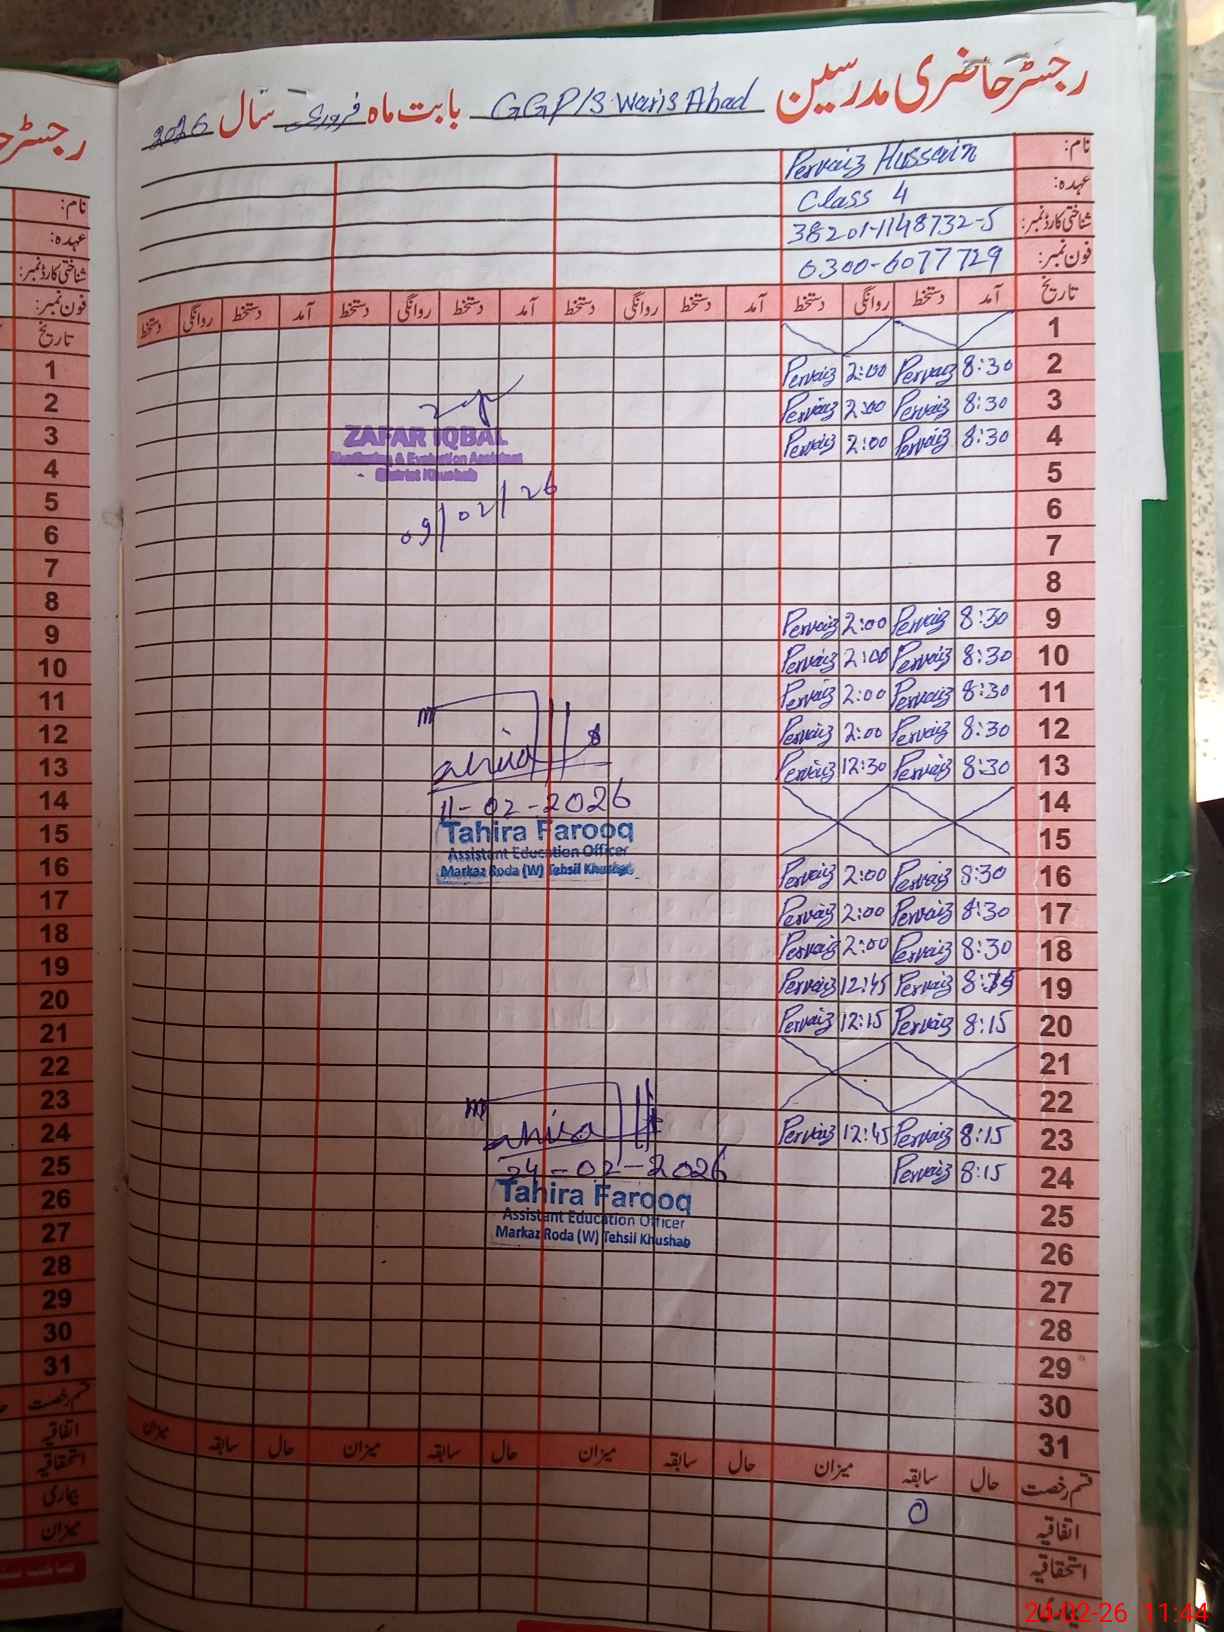 رجسٹر حاضری مدرسین GGP/S Waris Abad بابت ماہ فروری سال 2026
نام: Pervaiz Hussain
عہدہ: Class 4
شناختی کارڈ نمبر: 38201-1148732-5
فون نمبر: 0300-6077729
تاریخ آمد دستخط روانگی دستخط آمد دستخط روانگی دستخط آمد دستخط روانگی دستخط آمد دستخط روانگی دستخط
1
2 8:30 Pervaiz 2:00 Pervaiz
3 8:30 Pervaiz 2:00 Pervaiz
4 8:30 Pervaiz 2:00 Pervaiz
5
6
7
8
9 8:30 Pervaiz 2:00 Pervaiz
10 8:30 Pervaiz 2:00 Pervaiz
11 8:30 Pervaiz 2:00 Pervaiz
12 8:30 Pervaiz 2:00 Pervaiz
13 8:30 Pervaiz 12:30 Pervaiz
14
15
16 8:30 Pervaiz 2:00 Pervaiz
17 8:30 Pervaiz 2:00 Pervaiz
18 8:30 Pervaiz 2:00 Pervaiz
19 8:15 Pervaiz 12:45 Pervaiz
20 8:15 Pervaiz 12:15 Pervaiz
21
22
23 8:15 Pervaiz 12:45 Pervaiz
24 8:15 Pervaiz
25
26
27
28
29
30
31
قسم رخصت حال سابقہ میزان حال سابقہ میزان حال سابقہ میزان حال سابقہ میزان
اتفاقیہ 0
استحقاقیہ
ZAFAR IQBAL
Monitoring & Evaluation Assistant
District Khushab
09/02/26
11-02-2026
Tahira Farooq
Assistant Education Officer
Markaz Roda (W) Tehsil Khushab
24-02-2026
Tahira Farooq
Assistant Education Officer
Markaz Roda (W) Tehsil Khushab
نام:
عہدہ:
شناختی کارڈ نمبر:
فون نمبر:
تاریخ
1
2
3
4
5
6
7
8
9
10
11
12
13
14
15
16
17
18
19
20
21
22
23
24
25
26
27
28
29
30
31
قسم رخصت
اتفاقیہ
استحقاقیہ
بیماری
میزان
24-02-26 11:44